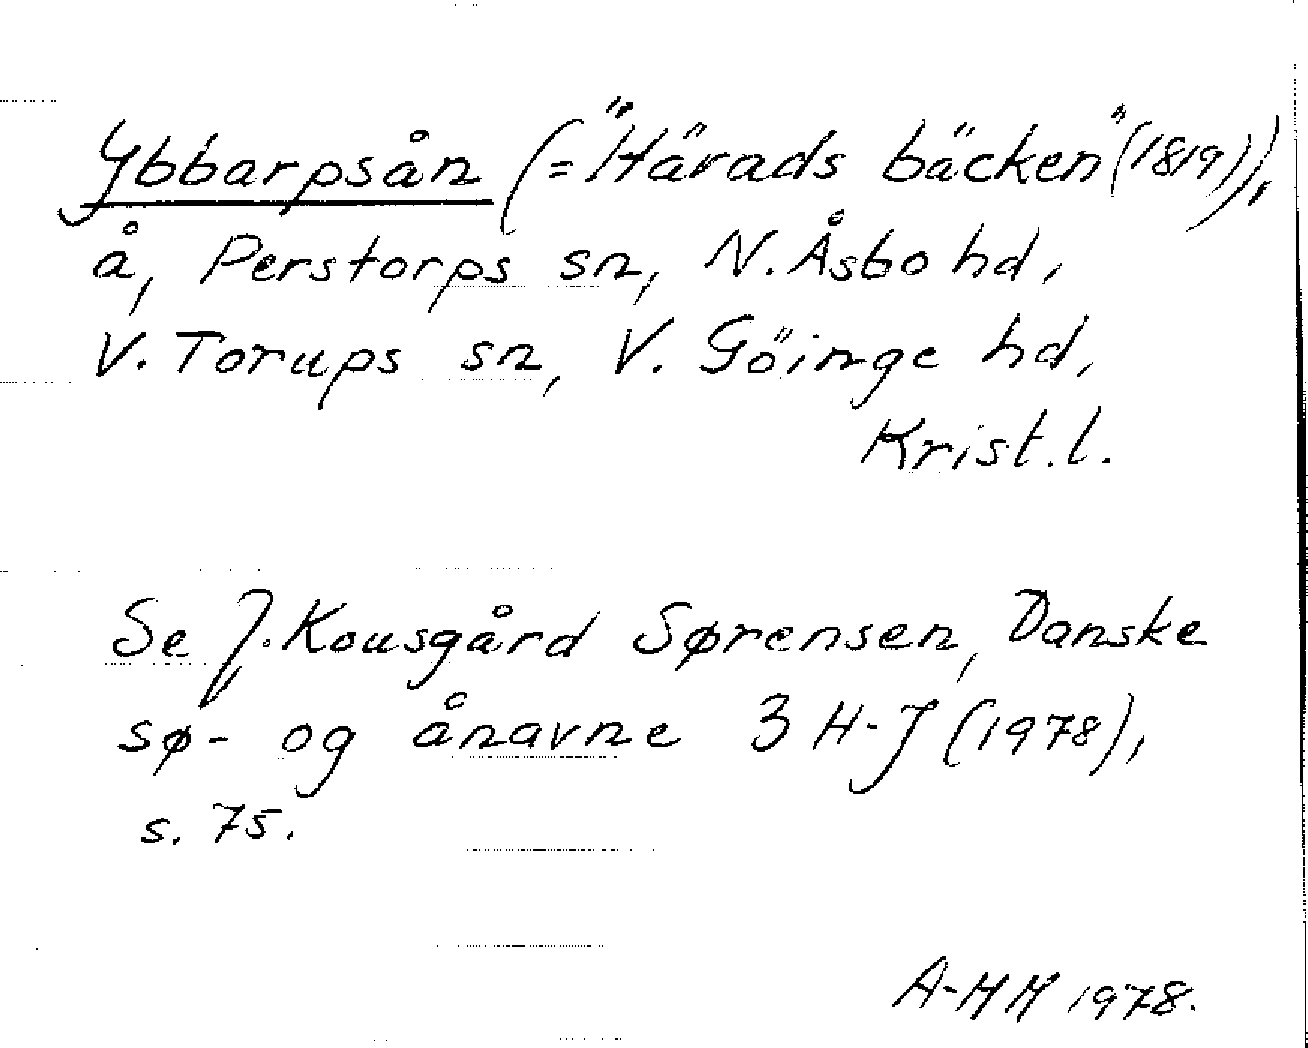 Ybbarpsån (= "Härads bäcken" (1819)),
å, Perstorps sn, N. Åsbo hd,
V. Torups sn, V. Göinge hd,
Krist. l.
Se J. Kousgård Sørensen, Danske
sø- og ånavne 3 H-J (1978),
s. 75.
A-MH 1978.